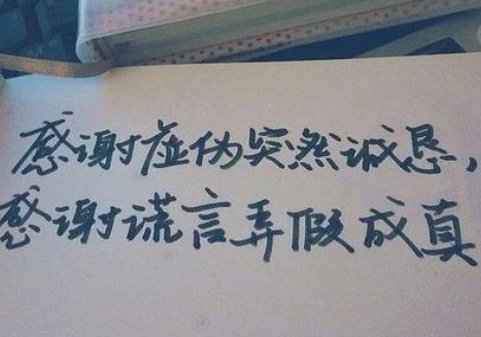 感谢虚伪突然诚恳，
感谢谎言弄假成真